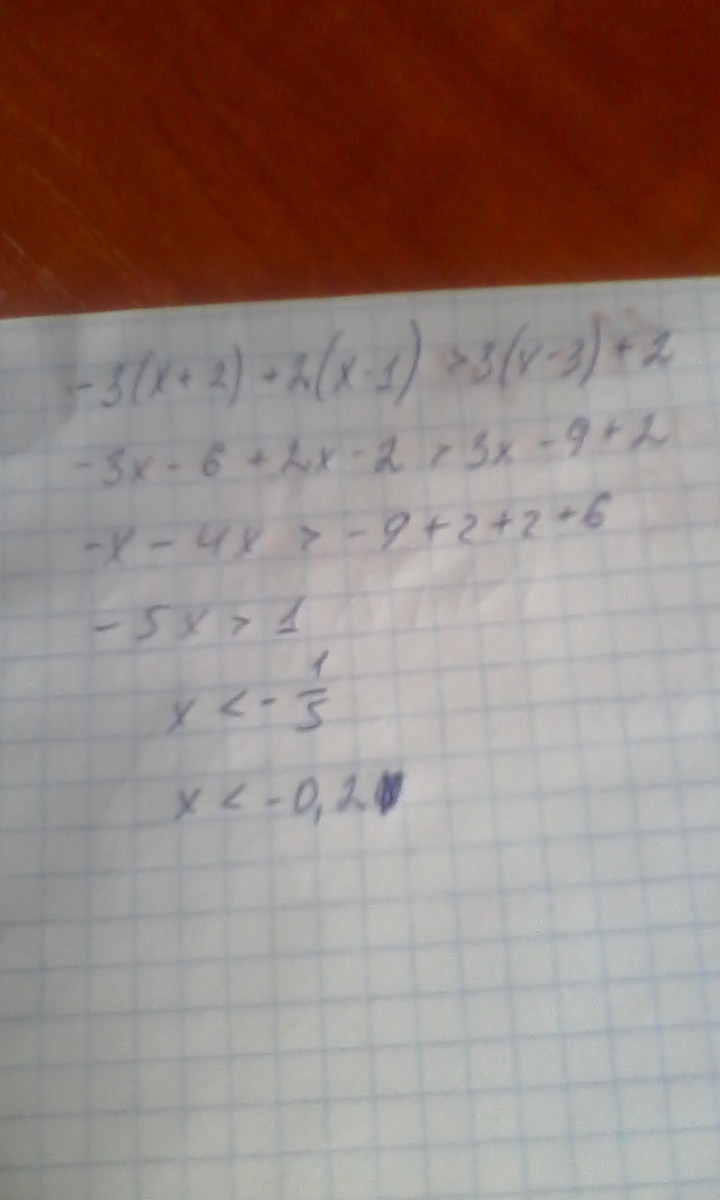 -3(x+2)+2(x-1)>3(x-3)+2
-3x-6+2x-2>3x-9+2
-x-4x>-9+2+2+6
-5x>1
x<-1/5
x<-0,2